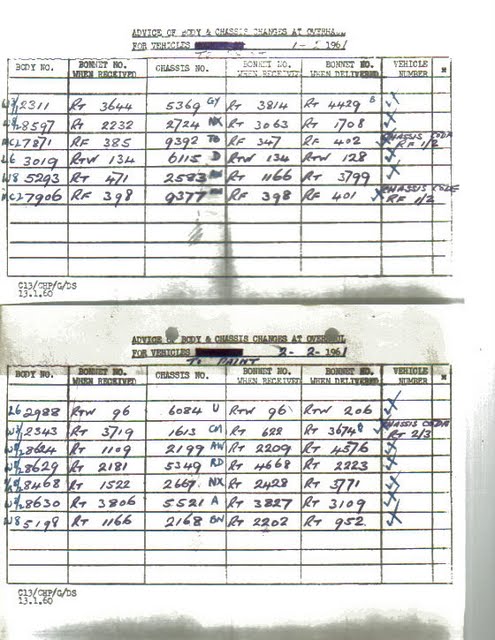 ADVICE OF BODY & CHASSIS CHANGES AT OVERHAUL
FOR VEHICLES 1961
BODY NO. BONNET NO. WHEN RECEIVED CHASSIS NO. BONNET NO. WHEN RECEIVED BONNET NO. WHEN DELIVERED VEHICLE NUMBER
2311 RT 3644 5369 GY RT 3814 RT 4429 B
8597 RT 2232 2724 NX RT 3063 RT 1708
7871 RF 385 9392 TO RF 347 RF 402 CHASSIS CODE RF 1/2
L6 3019 RTW 134 6115 D RTW 134 RTW 128
W8 5293 RT 471 2583 RT 1166 RT 3799
7906 RF 398 9377 RF 398 RF 401 CHASSIS CODE RF 1/2
C13/CHP/G/DS
13.1.60
ADVICE OF BODY & CHASSIS CHANGES AT OVERHAUL
FOR VEHICLES 2-2-1961
TO PAINT
BODY NO. BONNET NO. WHEN RECEIVED CHASSIS NO. BONNET NO. WHEN RECEIVED BONNET NO. WHEN DELIVERED VEHICLE NUMBER
L6 2988 RTW 96 6084 U RTW 96 RTW 206
2343 RT 3719 1613 CM RT 622 RT 3674 CHASSIS CODE RT 2/3
8624 RT 1109 2199 AW RT 2209 RT 4576
8629 RT 2181 5349 RD RT 4668 RT 2223
8468 RT 1522 2667 NX RT 2428 RT 3771
8630 RT 3806 5521 A RT 3827 RT 3109
W8 5198 RT 1166 2168 BN RT 2202 RT 952
C13/CHP/G/DS
13.1.60